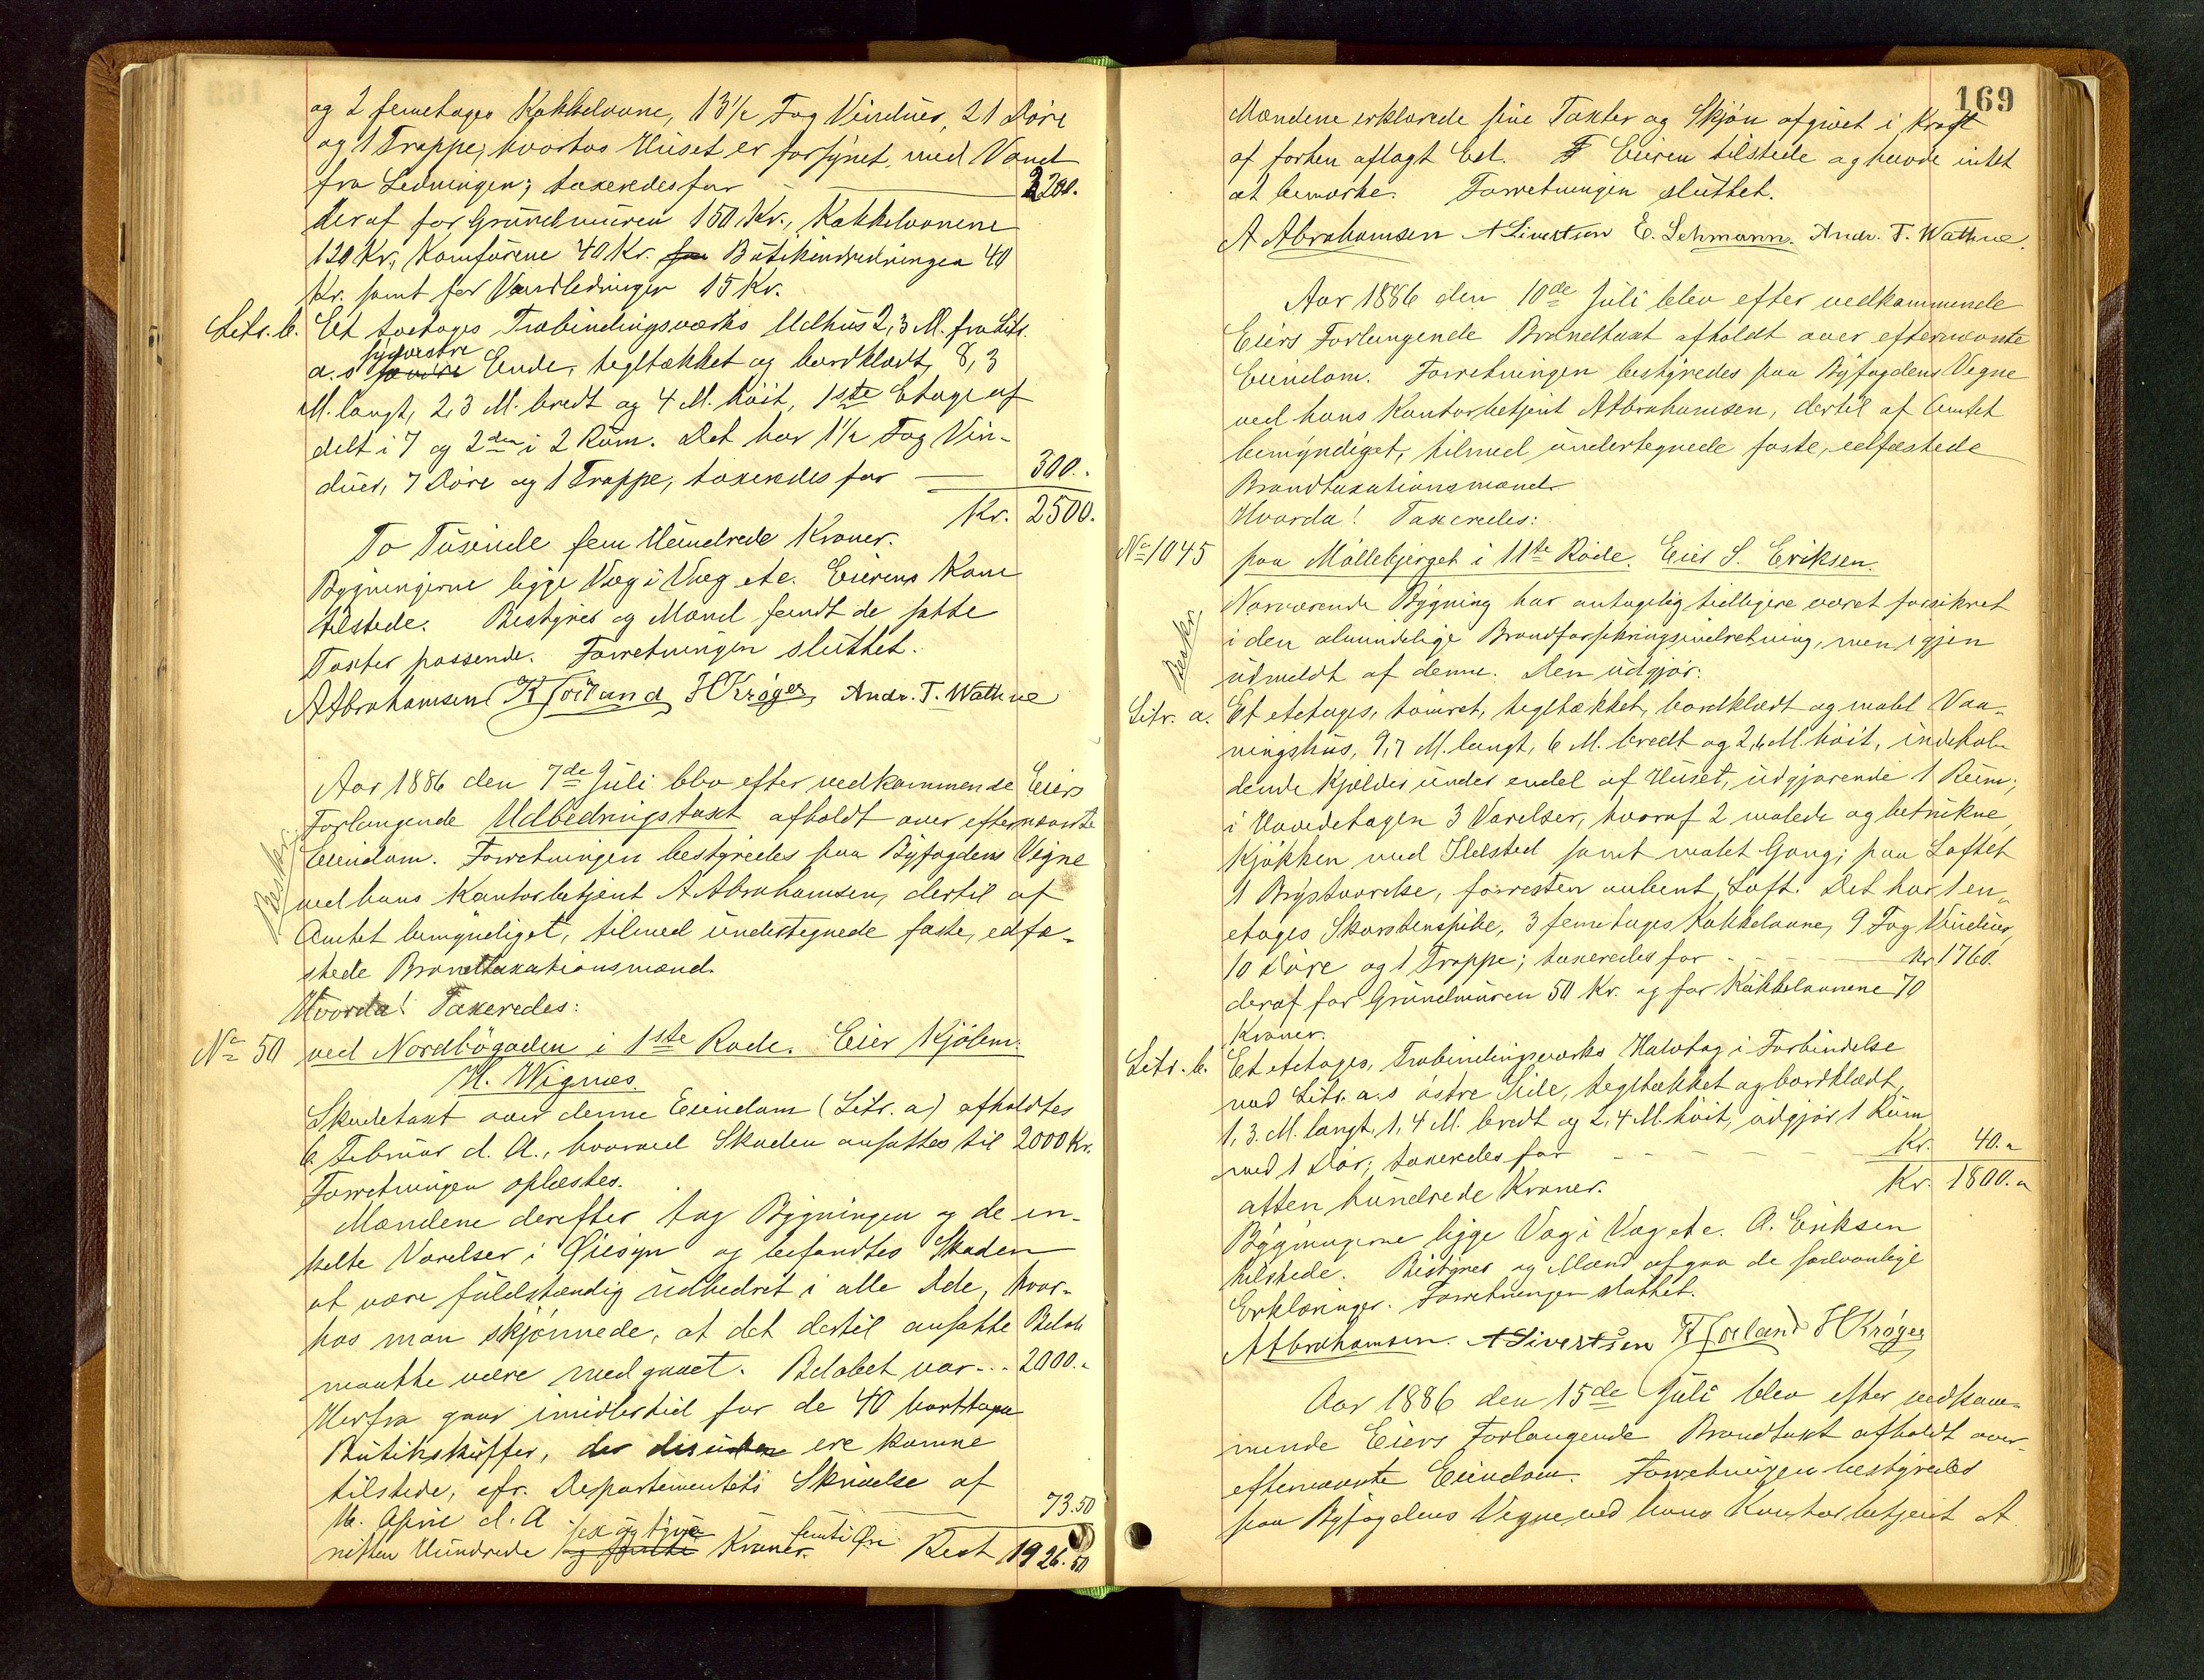 og 2 femetages Kakkelovne, 13½ Fag Vinduer, 21 Döre
og 1 Trappe; hvorhos Huset er forsÿnet med Vand
fra Ledningen; taxeredes for — 2200.
deraf for Grundmuren 150 Kr., Kakkelovnene
120 Kr., Komfurene 40 Kr. for Butikindredningen 40
Kr. samt for Vandledningen 15 Kr.
Litr. b. Et toetages Træbindingsværks Udhus 2,3 M. fra Litr.
sydvestre
a.s søndre Ende, tegltækket og bordklædt, 8,3
M. langt, 2,3 M. bredt og 4 M. höit, 1ste Etage af
delt i 7 og 2den i 2 Rum. Det har 1½ Fag Vin-
duer, 7 Döre og 1 Trappe, taxeredes for — 300..
Kr. 2500.
To Tusinde fem Hundrede Kroner.
Bygningerne ligge Væg i Væg etc. Eierens Kone
tilstede. Bestyrer og Mænd fandt de satte
Taxter passende. Forretningen sluttet.
A Abrahamsen K Torland H Krøger Andr. T. Wathne
Aar 1886 den 7de Juli blev efter vedkommende Eiers
Forlangende Udbedringstaxt afholdt over efternævnte
Eiendom. Forretningen bestyredes paa Bÿfogdens Vegne
Beskr.
ved hans Kontorbetjent A Abrahamsen, dertil af
Amtet bemyndiget, tilmed undertegnede faste, edfæ-
stede Brandtaxationsmænd.
Hvorda! Taxeredes:
No 50 ved Nordbögaden i 1ste Rode. Eier Kjöbm.
H. Wignæs.
Skadetaxt over denne Eiendom (Litr. a) afholdtes
6 Februar d. A., hvorved Skaden ansattes til 2000 Kr.
Forretningen oplæstes.
Mændene derefter tog Bygningen og de en-
kelte Værelser i Öiesyn og befandtes Skaden
at være fuldstændig udbedret i alle Dele, hvor-
hos man skjönnede, at det dertil ansatte Belöb
maatte være medgaaet. Belöbet var... 2000..
Herfra gaar imidlertid for de 40 borttagne
Butikskuffer, der desuden ere komne
tilstede, cfr. Departementets Skrivelse af
16. April d. A — 73.50
sex og tyve femti Öre
nitten Hundrede Kroner. Rest 1926.50
169
Mændene erklærede sine Taxter og Skjön afgivet i Kraft
af forhen aflagt Ed. Eieren tilstede og havde intet
at bemærke. Forretningen sluttet.
A Abrahamsen A Sivertsen E. Lehmann. Andr. T. Wathne.
Aar 1886 den 10de Juli blev efter vedkommende
Eiers Forlangende Brandtaxt afholdt over efternævnte
Eiendom. Forretningen bestÿredes paa Bÿfogdens Vegne
ved hans Kontorbetjent A Abrahamsen, dertil af Amtet
bemÿndiget, tilmed undertegnede faste, edfæstede
Brandtaxationsmænd.
Hvorda! Taxeredes:
No 1045 paa Möllebjerget i 11te Rode. Eier S. Eriksen.
Beskr.
Nærværende Bÿgning har antagelig tidligere været forsikret
i den almindelige Brandforsikringsindretning, men igjen
udmeldt af denne. Den udgjör:
Litr. a. Et etetages, tömret, tegltækket, bordklædt og malet Vaa-
ningshus, 9,7 M. langt, 6 M. bredt og 2,6 M. höit, indehol-
dende Kjelder under endel af Huset, udgjörende 1 Rum;
i Hovedetagen 3 Værelser, hvoraf 2 malede og betrukne,
Kjökken med Ildsted samt malet Gang; paa Loftet
1 Brystværelse, forresten aabent Loft. Det har 1 en-
etages Skorstenspibe, 3 femetages Kakkelovne, 9 Fag Vinduer,
10 Döre og 1 Trappe; taxeredes for — Kr. 1760.
deraf for Grundmuren 50 Kr. og for Kakkelovnene 70
Kroner.
Litr. b. Et etetages, Træbindingsværks Halvtag i Forbindelse
med Litr. a.s östre Side, tegltækket og bordklædt,
1,3. M. langt, 1,4 M. bredt og 2,4 M. höit, udgjör 1 Rum
med 1 Dör; taxeredes for — Kr. 40.
atten hundrede Kroner. Kr. 1800.
Bÿgningerne ligge Væg i Væg etc. A. Eriksen
tilstede. Bestÿrer og Mænd afgav de sædvanlige
Erklæringer. Forretningen sluttet.
A Abrahamsen. A Sivertsen K Torland H Krøger
Aar 1886 den 15de Juli blev efter vedkom-
mende Eiers Forlangende Brandtaxt afholdt over
efternævnte Eiendom. Forretningen bestÿredes
paa Bÿfogdens Vegne ved hans Kontorbetjent A